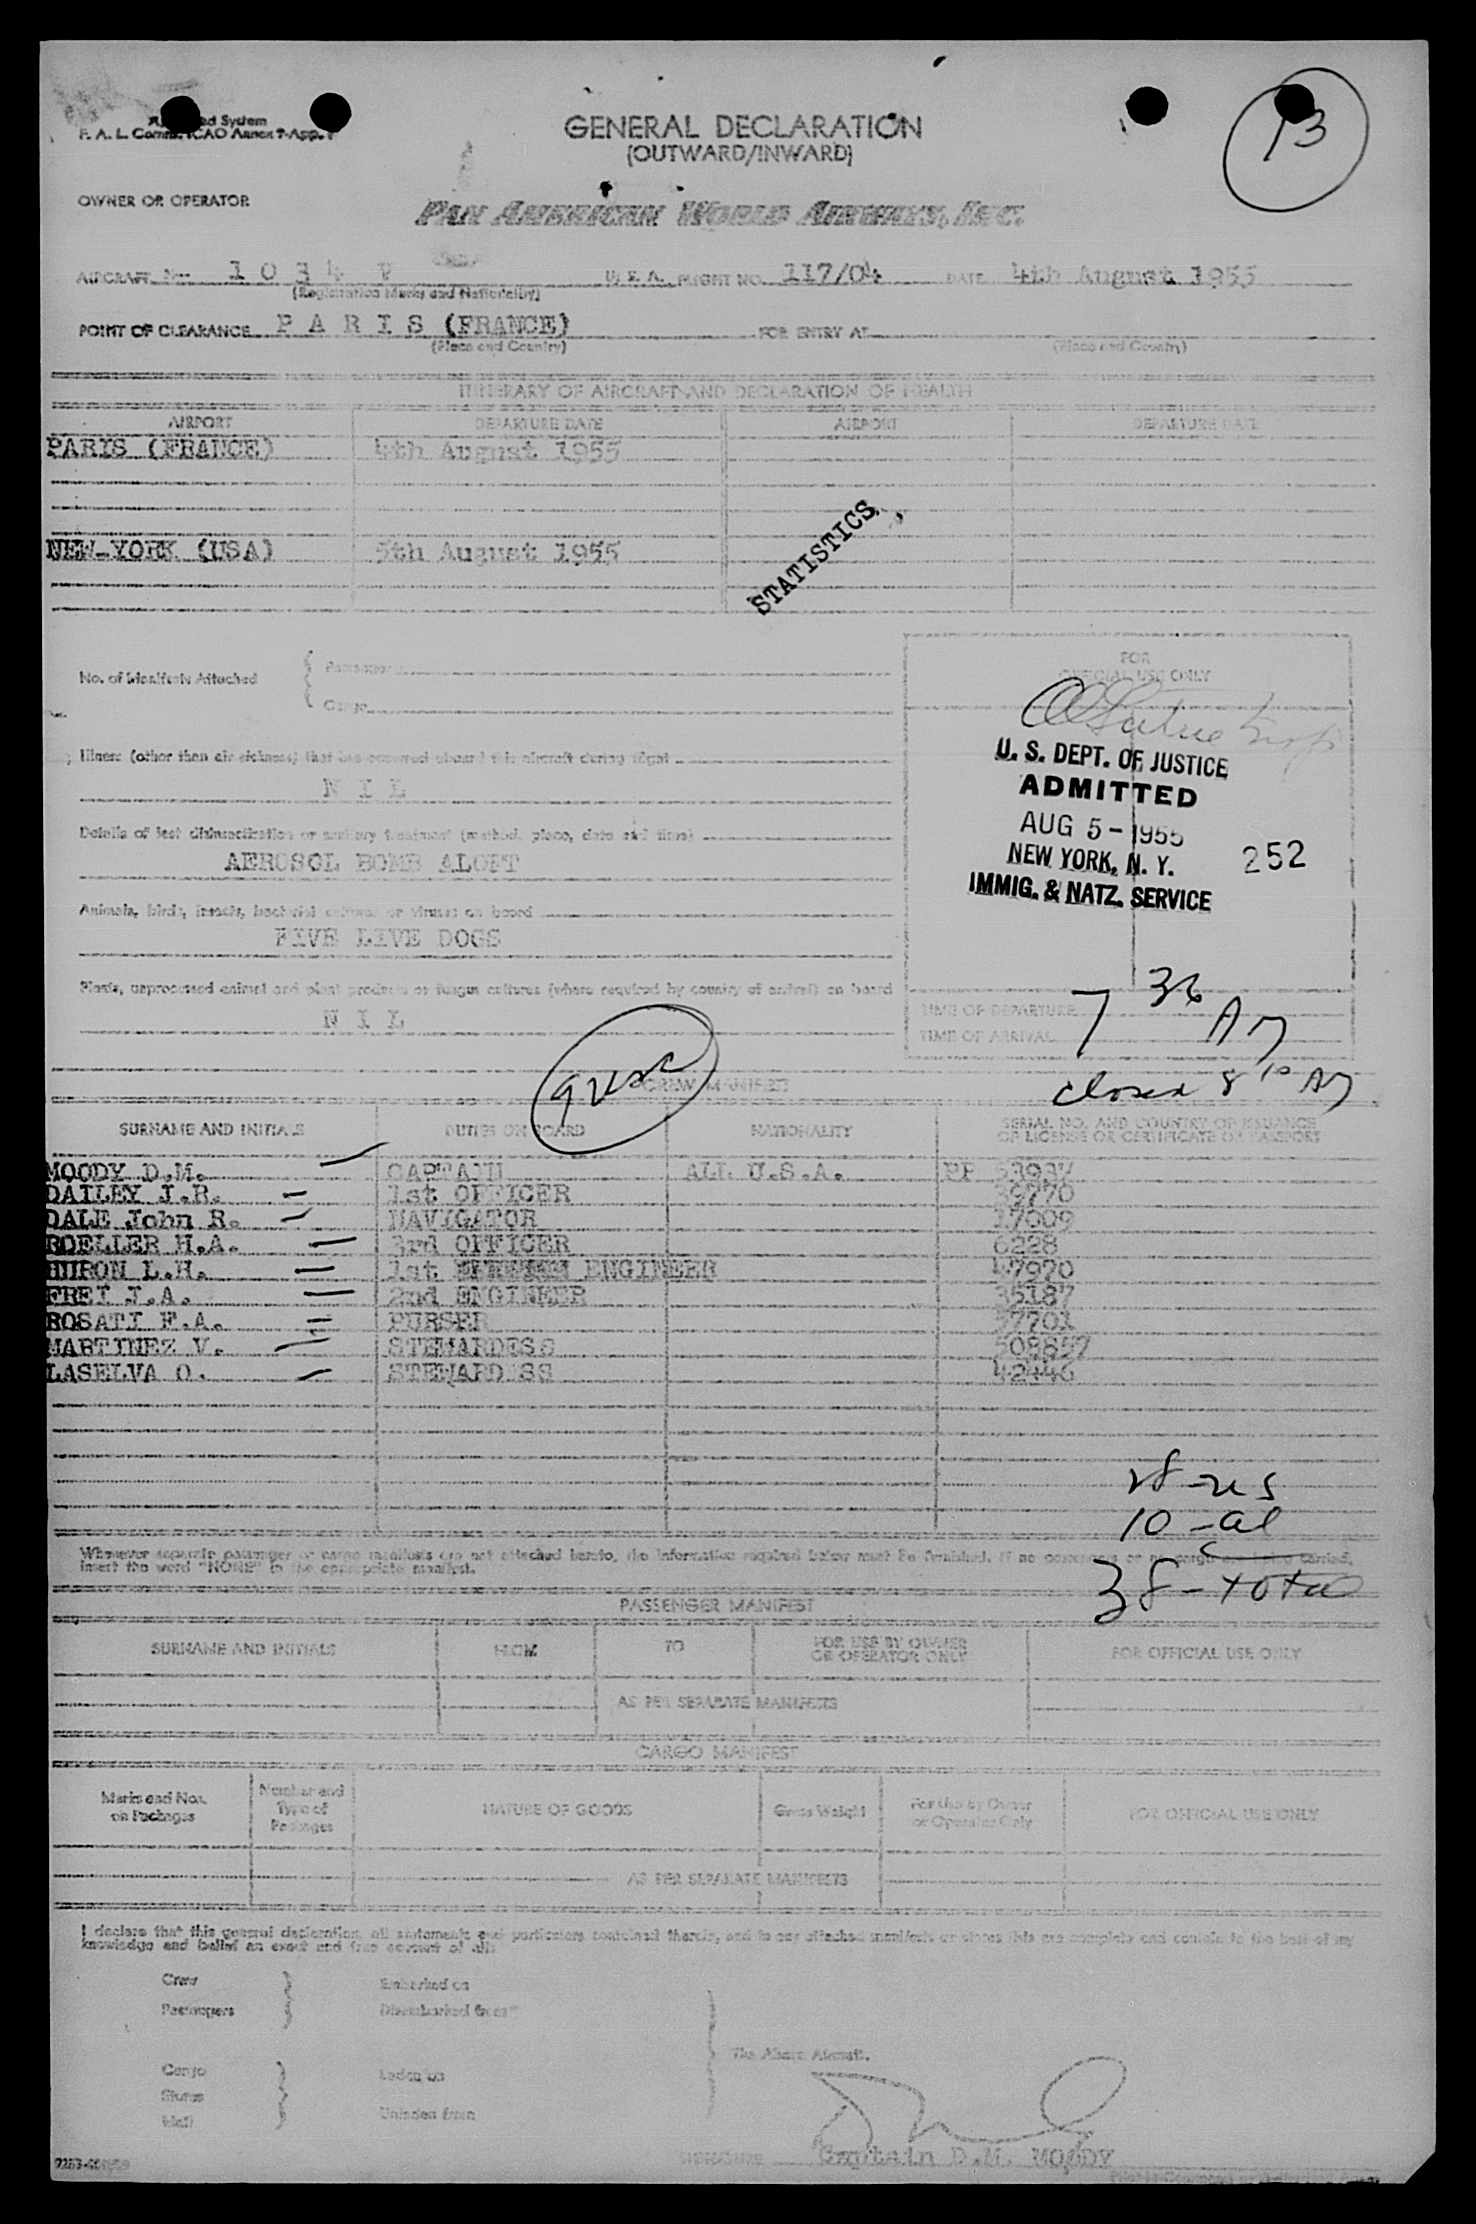 F. A. L. Comm. ICAO Annex 9-App.
13
GENERAL DECLARATION
(OUTWARD/INWARD)
OWNER OR OPERATOR
PAN AMERICAN WORLD AIRWAYS, INC.
AIRCRAFT No. 1034 V U. S. A. FLIGHT NO. 117/04 DATE 4th August 1955
(Registration Marks and Nationality)
POINT OF CLEARANCE PARIS (FRANCE) FOR ENTRY AT
(Place and Country) (Place and Country)
ITINERARY OF AIRCRAFT AND DECLARATION OF HEALTH
AIRPORT DEPARTURE DATE AIRPORT DEPARTURE DATE
PARIS (FRANCE) 4th August 1955
NEW-YORK (USA) 5th August 1955
STATISTICS
No. of Manifests Attached
Passenger
Cargo
FOR
OFFICIAL USE ONLY
Illness (other than air sickness) that has occurred aboard this aircraft during flight
NIL
U. S. DEPT. OF JUSTICE
ADMITTED
AUG 5 - 1955
NEW YORK, N. Y. 252
IMMIG. & NATZ. SERVICE
Details of last disinsectization or sanitary treatment (method, place, date and time)
AEROSOL BOMB ALOFT
Animals, birds, insects, bacterial cultures or viruses on board
FIVE LIVE DOGS
Plants, unprocessed animal and plant products or fungus cultures (where required by country of arrival) on board
NIL
TIME OF DEPARTURE
TIME OF ARRIVAL
7 36 AM
closed 8 10 AM
9 usc
CREW MANIFEST
SURNAME AND INITIALS DUTIES ON BOARD NATIONALITY SERIAL NO. AND COUNTRY OF ISSUANCE
OF LICENSE OR CERTIFICATE OR PASSPORT
MOODY D.M. CAPTAIN ALL U.S.A. PP 53937
DAILEY J.R. 1st OFFICER 39770
DALE John R. NAVIGATOR 17009
ROELLER H.A. 3rd OFFICER 6228
HURON L.H. 1st ENGINEER 47970
FREI J.A. 2nd ENGINEER 35187
ROSATI F.A. PURSER 37701
MARTINEZ V. STEWARDESS 508857
LASELVA O. STEWARDESS 42446
28-us
10-al
38-total
Whenever separate passenger or cargo manifests are not attached hereto, the information required below must be furnished. If no passengers or no cargo are carried,
insert the word "NONE" in the appropriate manifest.
PASSENGER MANIFEST
SURNAME AND INITIALS FROM TO FOR USE BY OWNER
OR OPERATOR ONLY FOR OFFICIAL USE ONLY
AS PER SEPARATE MANIFESTS
CARGO MANIFEST
Marks and Nos.
on Packages
Number and
Type of
Packages
NATURE OF GOODS Gross Weight For Use by Owner
or Operator Only FOR OFFICIAL USE ONLY
AS PER SEPARATE MANIFESTS
I declare that this general declaration, all statements and particulars contained therein, and in any attached manifests are complete and contain to the best of my
knowledge and belief an exact and true account of all:
Crew Embarked on
Passengers Disembarked from
The Above Aircraft.
Cargo Laden on
Stores
Mail Unladen from
SIGNATURE Captain D.M. MOODY